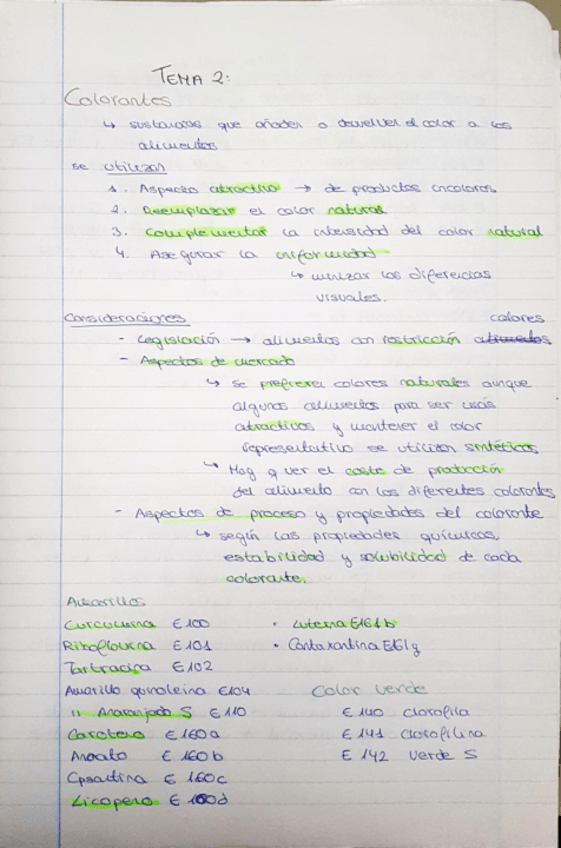 TEMA 2:
Colorantes
↳ sustancias que añaden o devuelven el color a los
alimentos
se utilizan
1. Aspecto atractivo → de productos incoloros
2. Reemplazar el color natural
3. Complementar la intensidad del color natural
4. Asegurar la uniformidad
↳ minizar las diferencias
visuales.
Consideraciones
colores
- Legislación → alimentos con restricción alimentos
- Aspectos de mercado
↳ se prefieren colores naturales aunque
algunos alimentos para ser más
atractivos y mantener el color
representativo se utilizan sintéticos
↳ Hay q ver el coste de producción
del alimento con los diferentes colorantes
- Aspectos de proceso y propiedades del colorante
↳ según las propiedades químicas,
estabilidad y solubilidad de cada
colorante.
Amarillos
Curcumina E100
Riboflavina E101
Tartracina E102
Amarillo quinoleina E104
" Anaranjado S E110
Caroteno E160a
Anoato E160b
Cpsactina E160c
Licopeno E160d
• Luteina E161b
• Cantaxantina E161g
Color verde
E140 clorofila
E141 clorofilina
E142 verde S